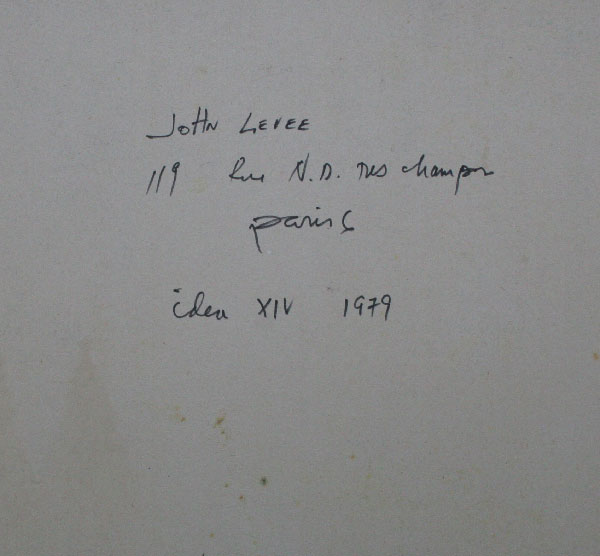 JOHN LEVEE
119 Rue N.D. Des champs
Paris 6
idea XIV 1979